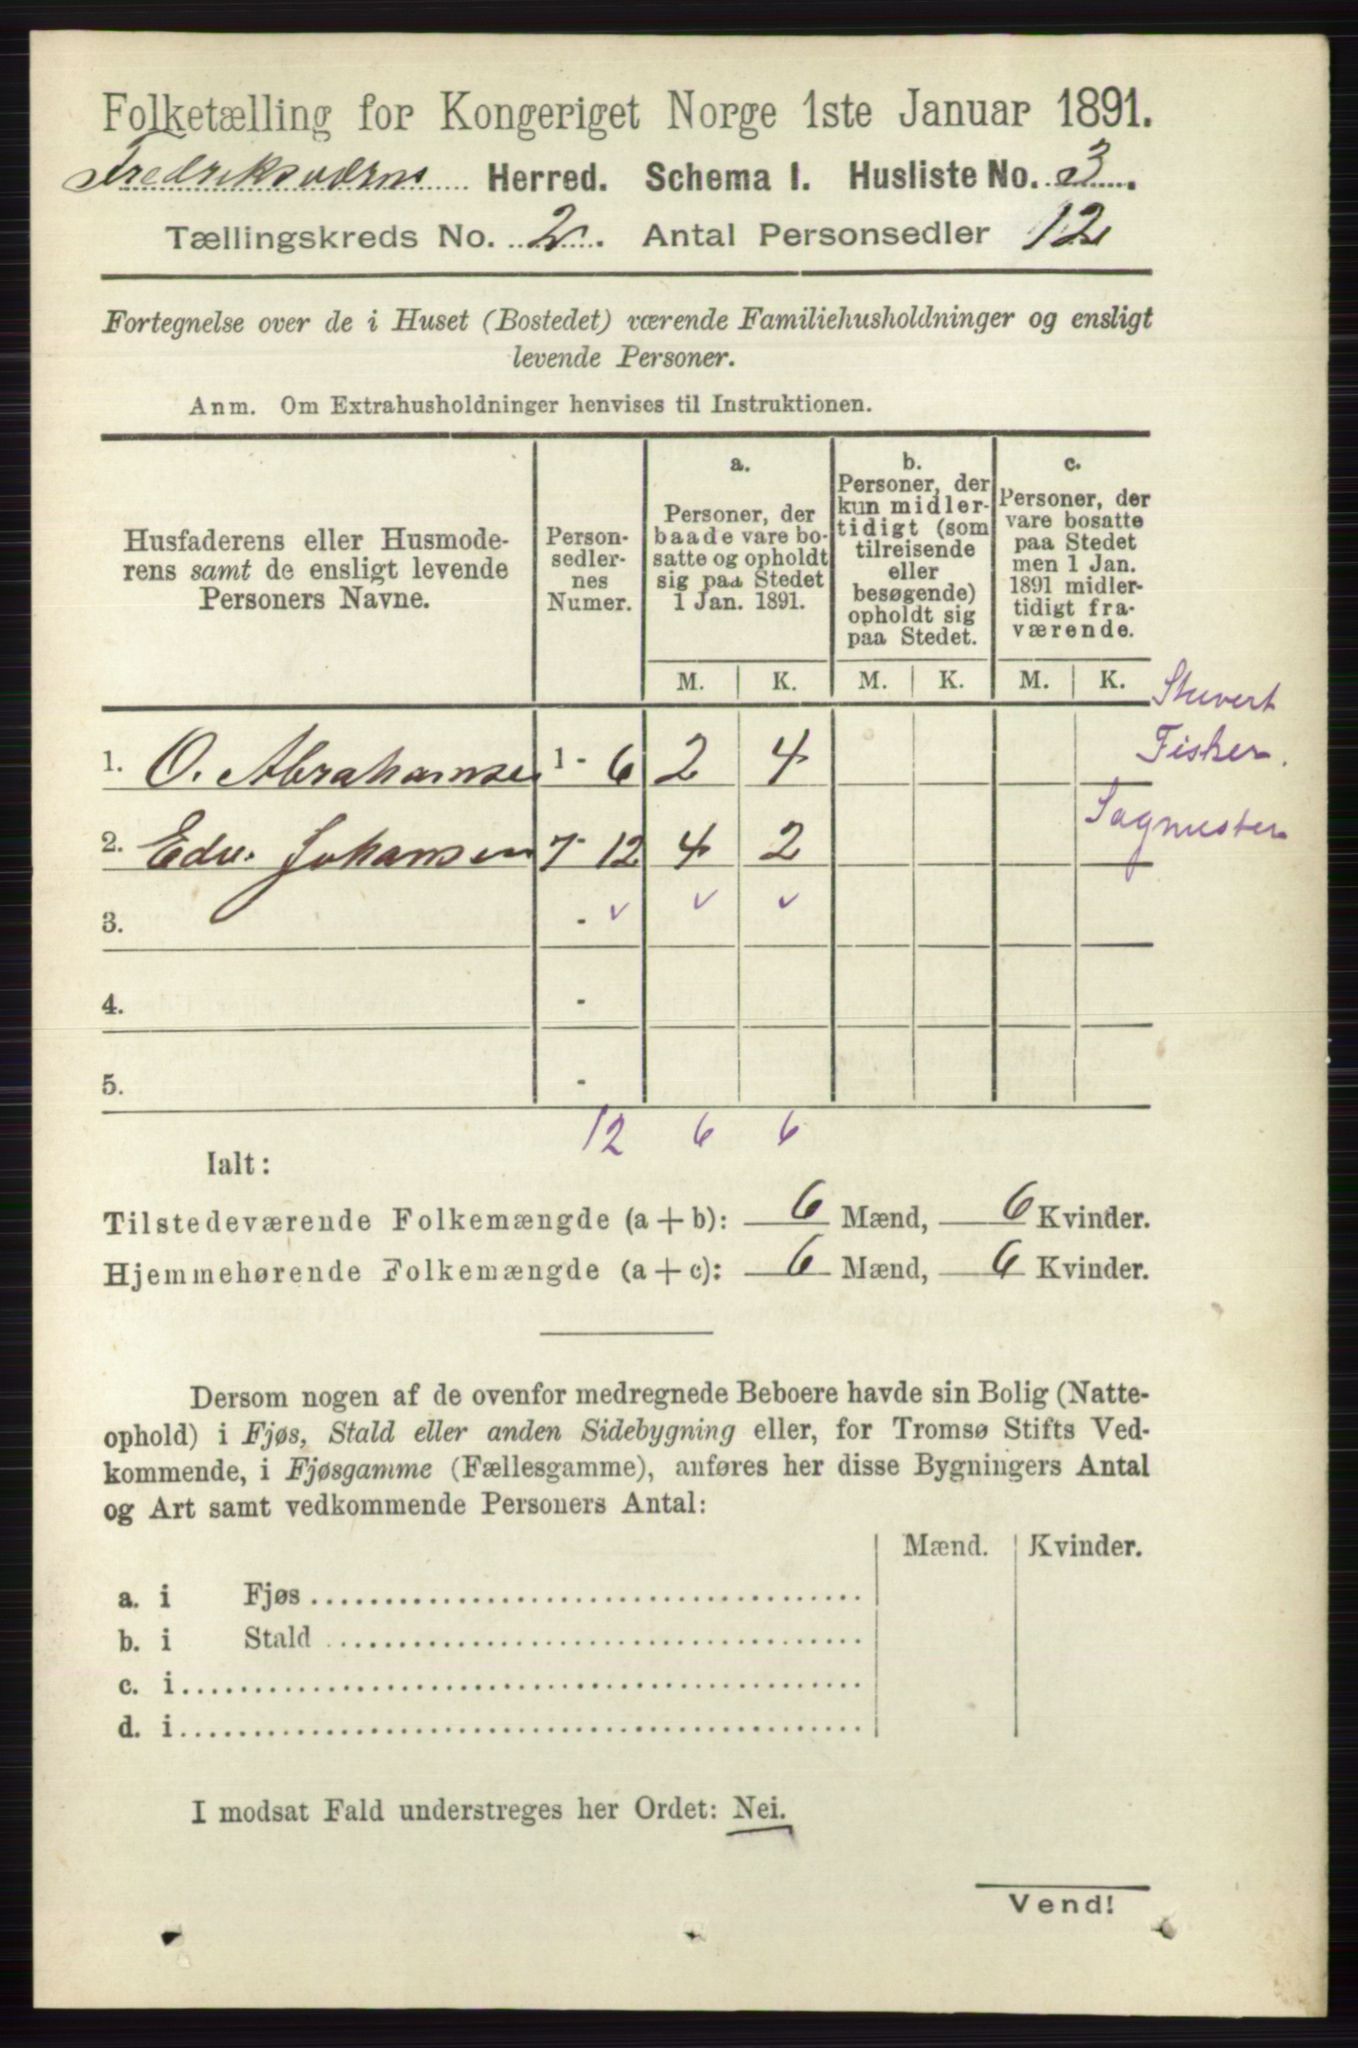 Folketælling for Kongeriget Norge 1ste Januar 1891.
Fredriksværns Herred. Schema I. Husliste No. 3.
Tællingskreds No. 2. Antal Personsedler 12
Fortegnelse over de i Huset (Bostedet) værende Familiehusholdninger og ensligt
levende Personer.
Anm. Om Extrahusholdninger henvises til Instruktionen.
Husfaderens eller Husmode-
rens samt de ensligt levende
Personers Navne.
Person-
sedler-
nes
Numer.
a.
Personer, der
baade vare bo-
satte og opholdt
sig paa Stedet
1 Jan. 1891.
b.
Personer, der
kun midler-
tidigt (som
tilreisende
eller
besøgende)
opholdt sig
paa Stedet.
c.
Personer, der
vare bosatte
paa Stedet
men 1 Jan.
1891 midler-
tidigt fra-
værende.
M. K. M. K. M. K.
Stuvert
1. O. Abrahamsen 1 - 6 2 4 Fisker.
2. Edv. Johansen 7 - 12 4 2 Sagmester
3. - v v v
4. -
5. -
12 6 6
Ialt:
Tilstedeværende Folkemængde (a + b): 6 Mænd, 6 Kvinder.
Hjemmehørende Folkemængde (a + c): 6 Mænd, 6 Kvinder.
Dersom nogen af de ovenfor medregnede Beboere havde sin Bolig (Natte-
ophold) i Fjøs, Stald eller anden Sidebygning eller, for Tromsø Stifts Ved-
kommende, i Fjøsgamme (Fællesgamme), anføres her disse Bygningers Antal
og Art samt vedkommende Personers Antal:
Mænd. Kvinder.
a. i Fjøs
b. i Stald
c. i
d. i
I modsat Fald understreges her Ordet: Nei.
Vend!